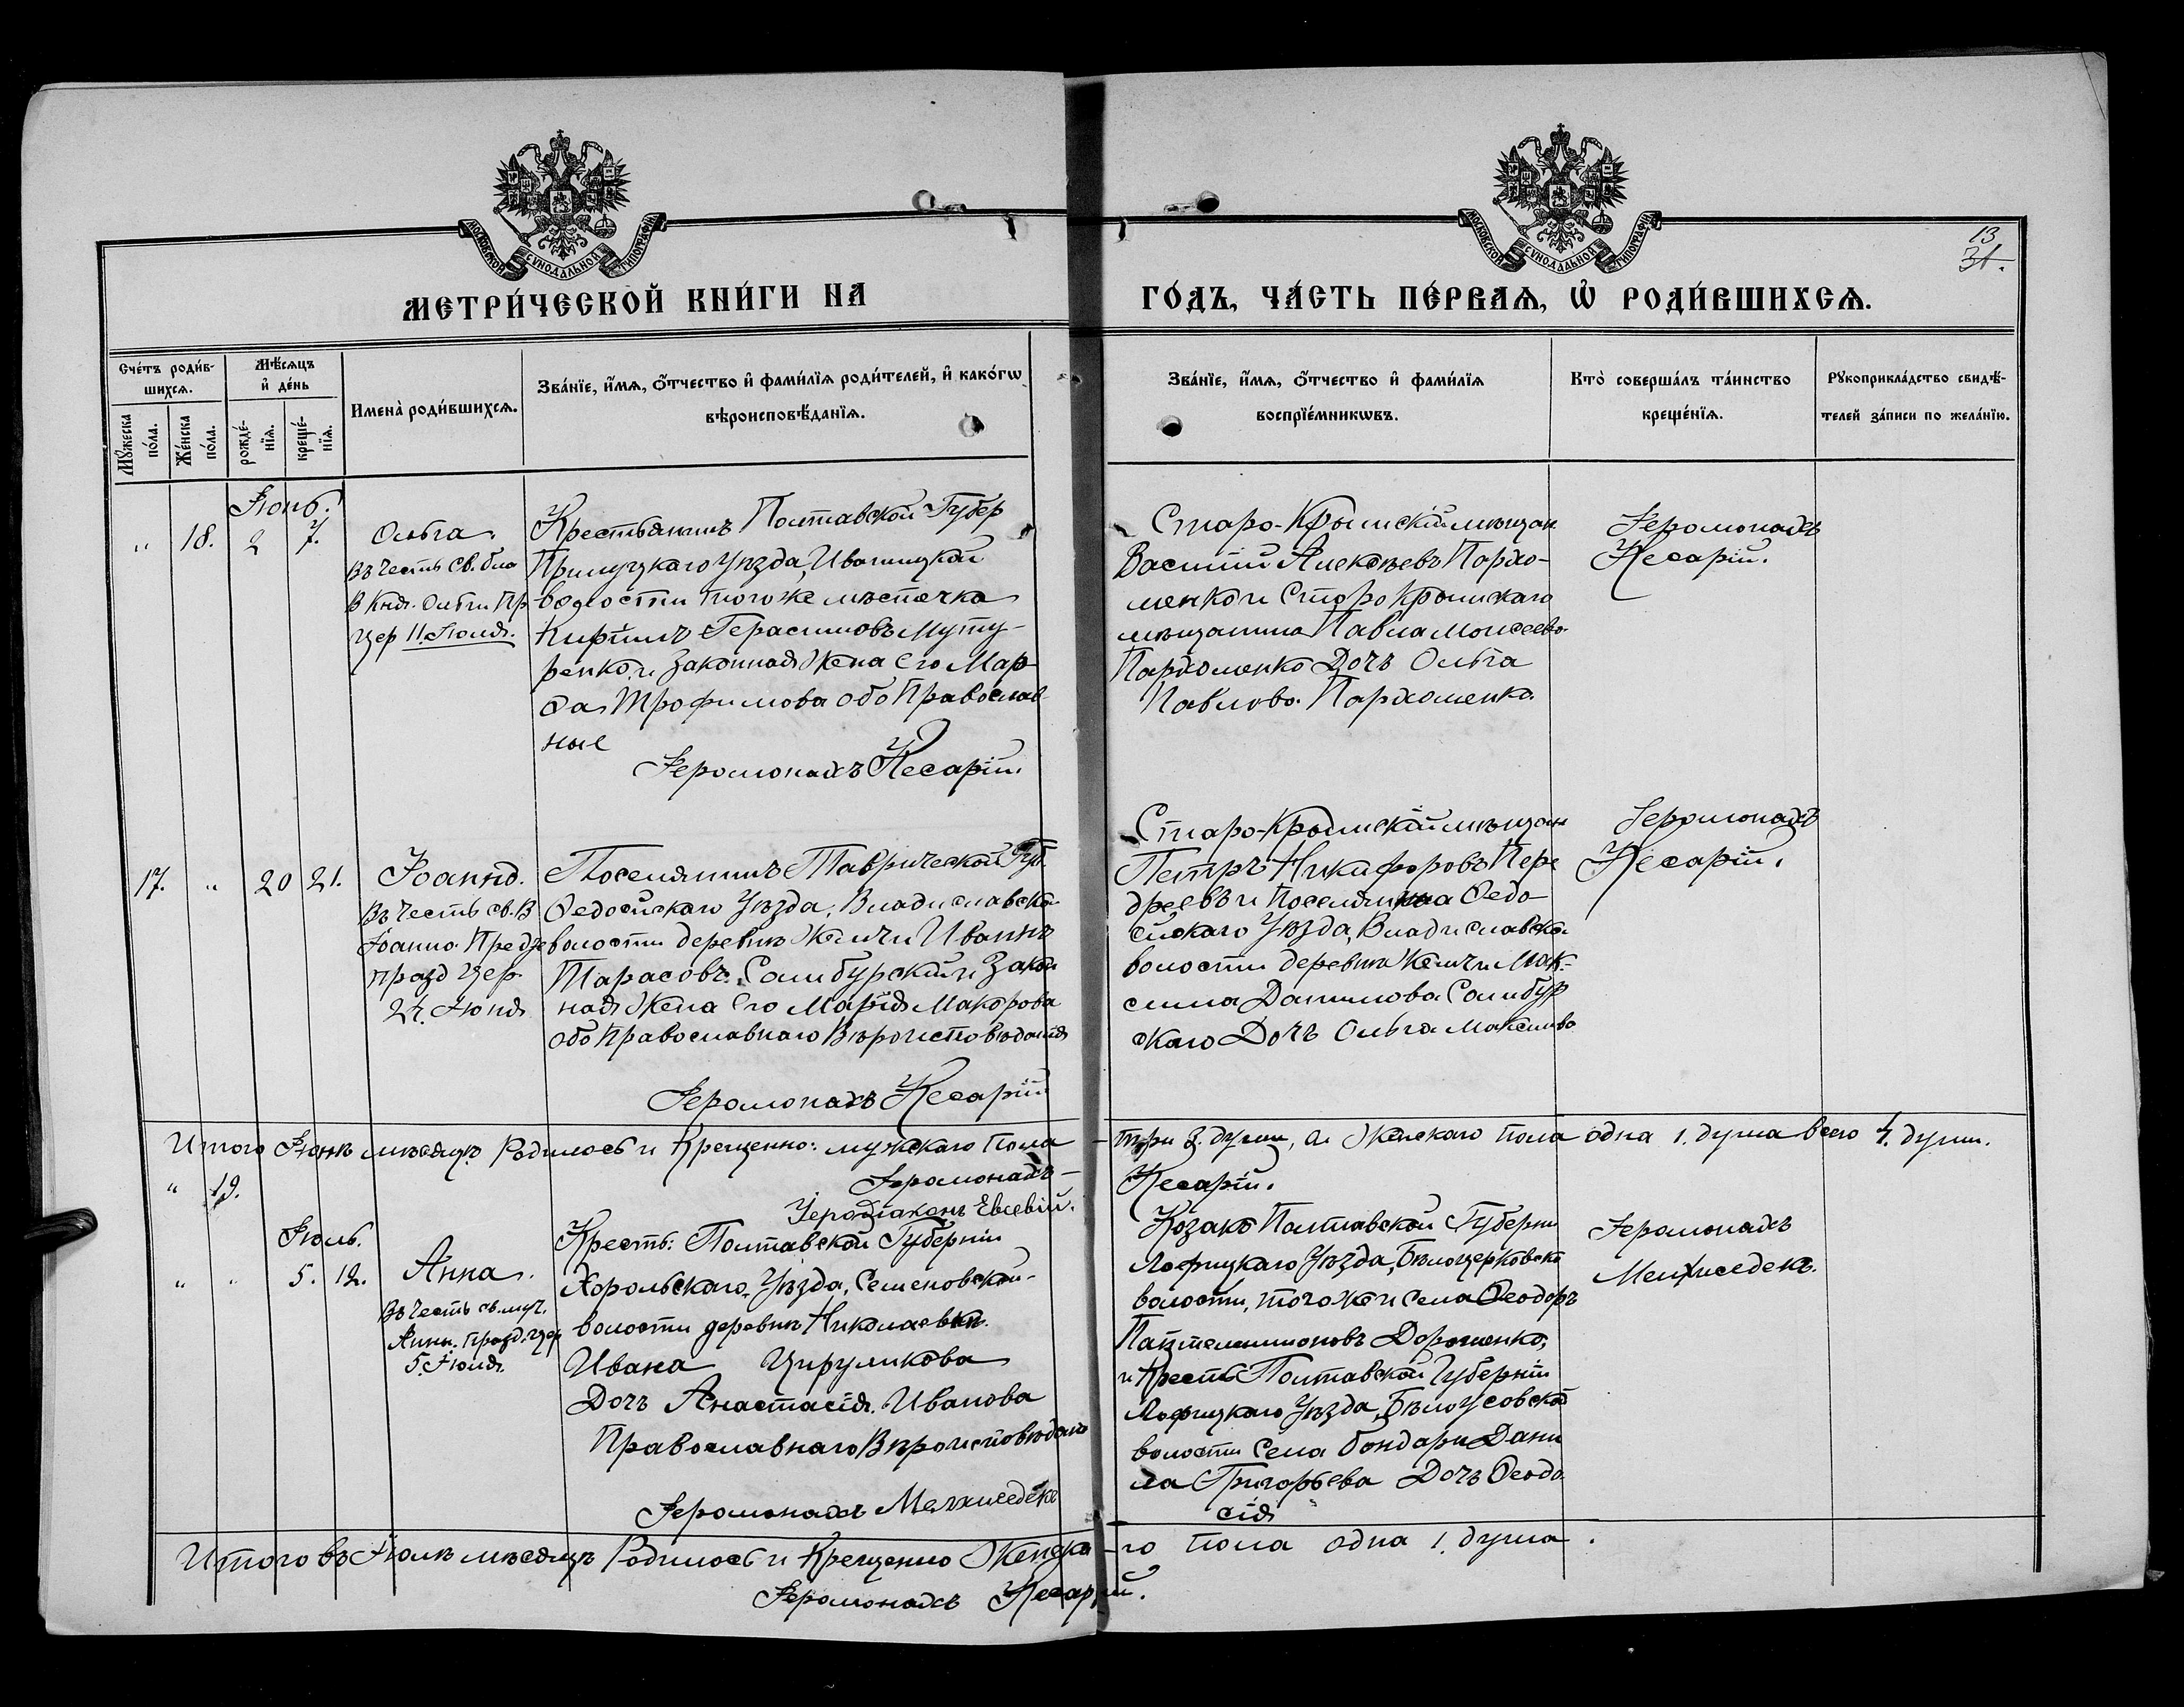 МОСКОВСКОЙ СѴНОДАЛЬНОЙ ТИПОГРАФІИ
МОСКОВСКОЙ СѴНОДАЛЬНОЙ ТИПОГРАФІИ
13
31.
МЕТРИ́ЧЕСКОЙ КНИ́ГИ НА
ГО́ДЪ, ЧА́СТЬ ПЕ́РВАѦ, Ѡ҆ РОДИ́ВШИХСѦ.
Сче́тъ роди́в-
шихсѧ.
Мꙋ́жеска по́ла.
Же́нска по́ла.
Мѣ́сѧцъ
и҆ де́нь
рожде́-нїѧ.
креще́-нїѧ.
Имена̀ роди́вшихсѧ.
Зва́нїе, и҆́мѧ, ѻ҆́тчество и҆ фами́лїѧ роди́телей, и҆ како́гѡ
вѣроисповѣ́данїѧ.
Зва́нїе, и҆́мѧ, ѻ҆́тчество и҆ фами́лїѧ
воспрїе́мникѡвъ.
Кто̀ соверша́лъ та́инство
креще́нїѧ.
Рꙋкоприкла́дство свидѣ́-
телей за́писи по жела́нїю.
Іюнь.
" 18. 2 7.
Ольга.
Въ честь св. бла
В Кня. Ольги Пр
цер 11. Іюля.
Крестьянинъ Полтавской Губер
Прилуцкаго Уѣзда, Иваницкой
волости того же мѣстечка
Кириллъ Герасимовъ Муту-
ренко и Законная Жена его Мар-
ѳа Трофимова обо Православ
ные
Іеромонахъ Кесарій
Старо-Крымскій мѣщан
Василій Алексѣевъ Пархо-
менко и Старо Крымскаго
мѣщанина Павла Моисеева
Пархоменко Дочъ Ольга
Павлова Пархоменко.
Іеромонахъ
Кесарій.
17. " 20 21.
Іоаннъ.
Въ Честь св. В
Іоанна Предте
празд цер
24. Іюня
Поселянинъ Таврической Губ.
Ѳедосійскаго Уѣзда, Владиславско
волости деревни Желичи Иванъ
Тарасовъ Самбурскій и Закон
ная Жена его Марія Макорова
обо Православнаго Вѣроисповѣданія
Іеромонахъ Кесарій
Старо-Крымскій мѣщан
Петръ Никифоровъ Пере
дреевъ и Поселянина Ѳедо-
сійскаго Уѣзда, Владиславско
волости деревни Желичи Мак-
сима Данилова Самбур
скаго Дочъ Ольга Максимова
Іеромонахъ
Кесарій.
Итого Іюнѣ мѣсяцѣ Родилось и Крещенно: мужскаго Пола
- три 3. души, а Женскаго пола одна 1. душа всего 4. души.
" 19.
Іеромонахъ -
Кесарій.
Іеродіаконъ Евсевій.
Іюль.
" " 5. 12.
Анна.
Въ Честь св. муч.
Анны. празд. цер
5. Іюля.
Кресть: Полтавской Губерніи
Хорольскаго, Уѣзда, Семеновской-
волости деревни Николаевки.
Ивана Цируликова
Дочъ Анастасія Иванова
Православнаго Вѣроисповѣданія
Іеромонахъ Мелхиседекъ
Козакъ Полтавской Губерни
Лофицкаго Уѣзда, Бѣлоцерковско
волости, того же и села Ѳеодоръ
Пантелеимоновъ Дорошенко,
и Кресть Полтавской Губерніи
Лофицкаго Уѣзда, Бѣлоусовской
волости Села Бондари Дани
ла Григорьева Дочъ Ѳеодо
сія
Іеромонахъ
Мелхиседекъ.
Итого въ Іюлѣ мѣсяцѣ Родилось и Крещенно Женска
-го пола одна 1. душа.
Іеромонахъ Кесарій.